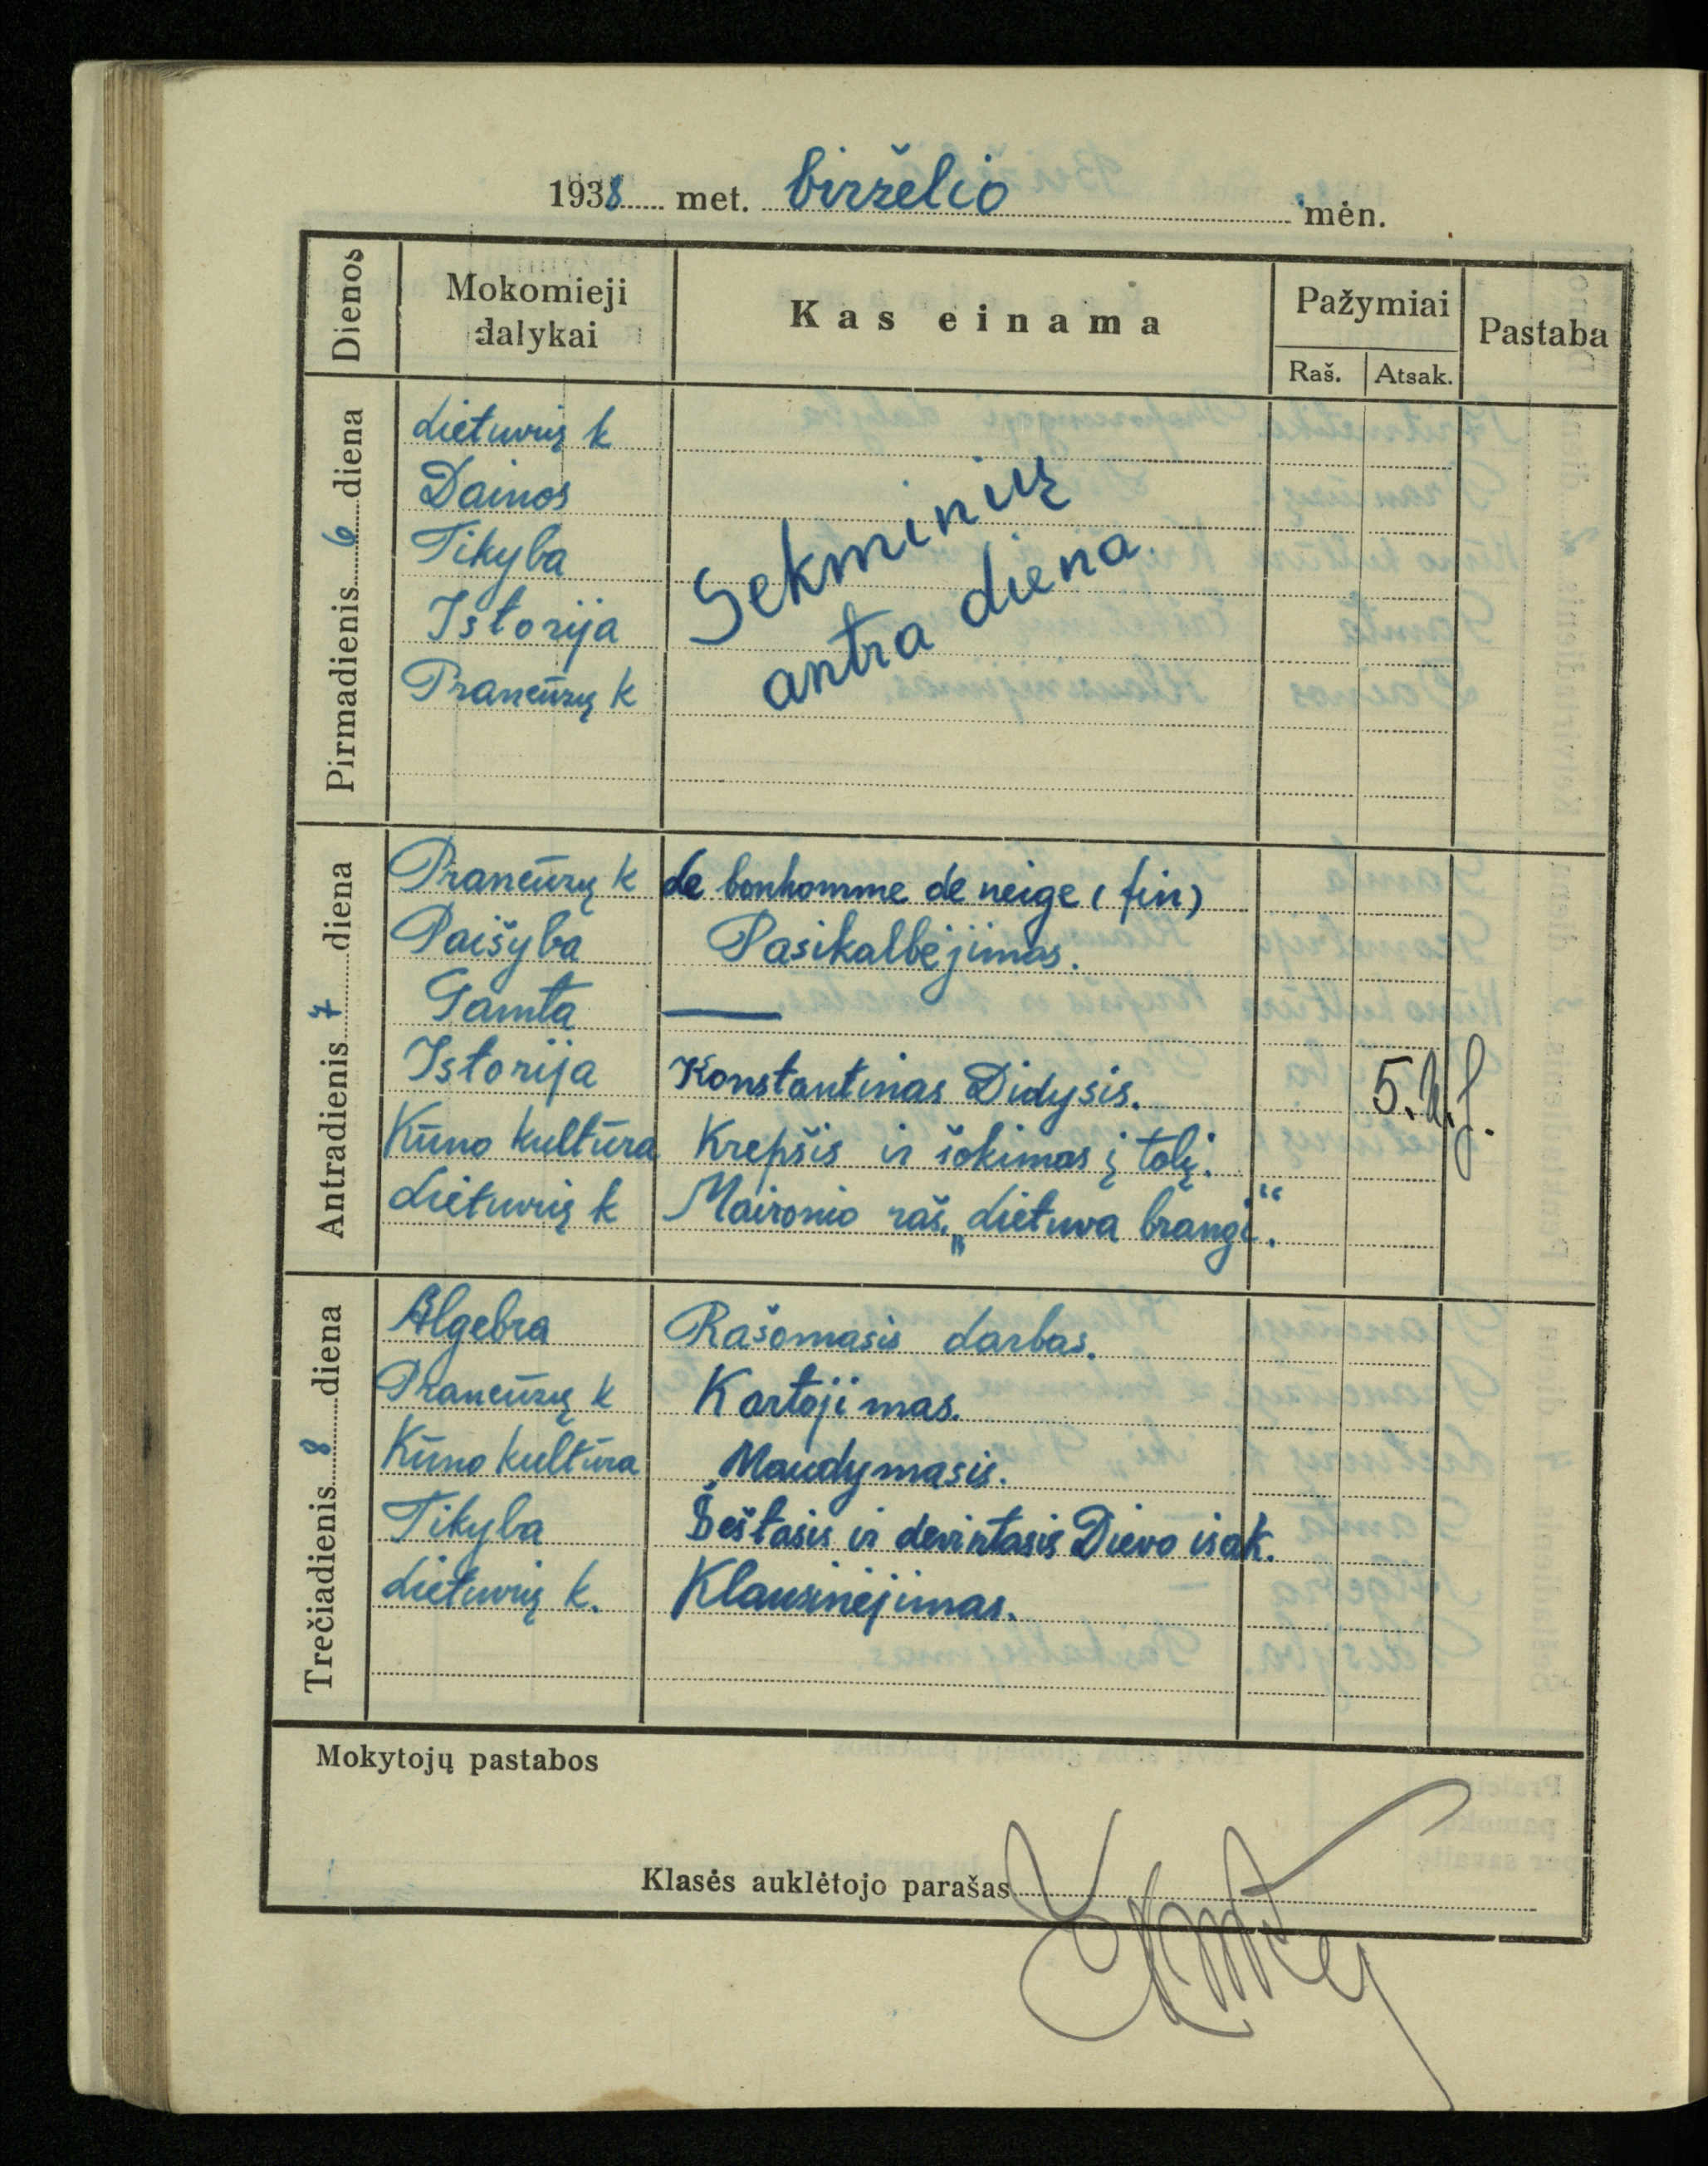 1938 met. birželio mėn.
Dienos
Mokomieji dalykai
Kas einama
Pažymiai
Raš. Atsak.
Pastaba
Pirmadienis 6 diena
Lietuvių k
Dainos
Tikyba
Istorija
Prancūzų k
Sekminių
antra diena.
Antradienis 7 diena
Prancūzų k Le bonhomme de neige (fin)
Paišyba Pasikalbėjimas.
Gamta —
Istorija Konstantinas Didysis. 5.
Kūno kultūra Krepšis ir šokimas į tolį.
Lietuvių k Maironio raš. „Lietuva brangi“.
Trečiadienis 8 diena
Algebra Rašomasis darbas.
Prancūzų k Kartojimas.
Kūno kultūra Maudymasis.
Tikyba Šeštasis ir devintasis Dievo isak.
Lietuvių k. Klausinėjimas.
Mokytojų pastabos
Klasės auklėtojo parašas